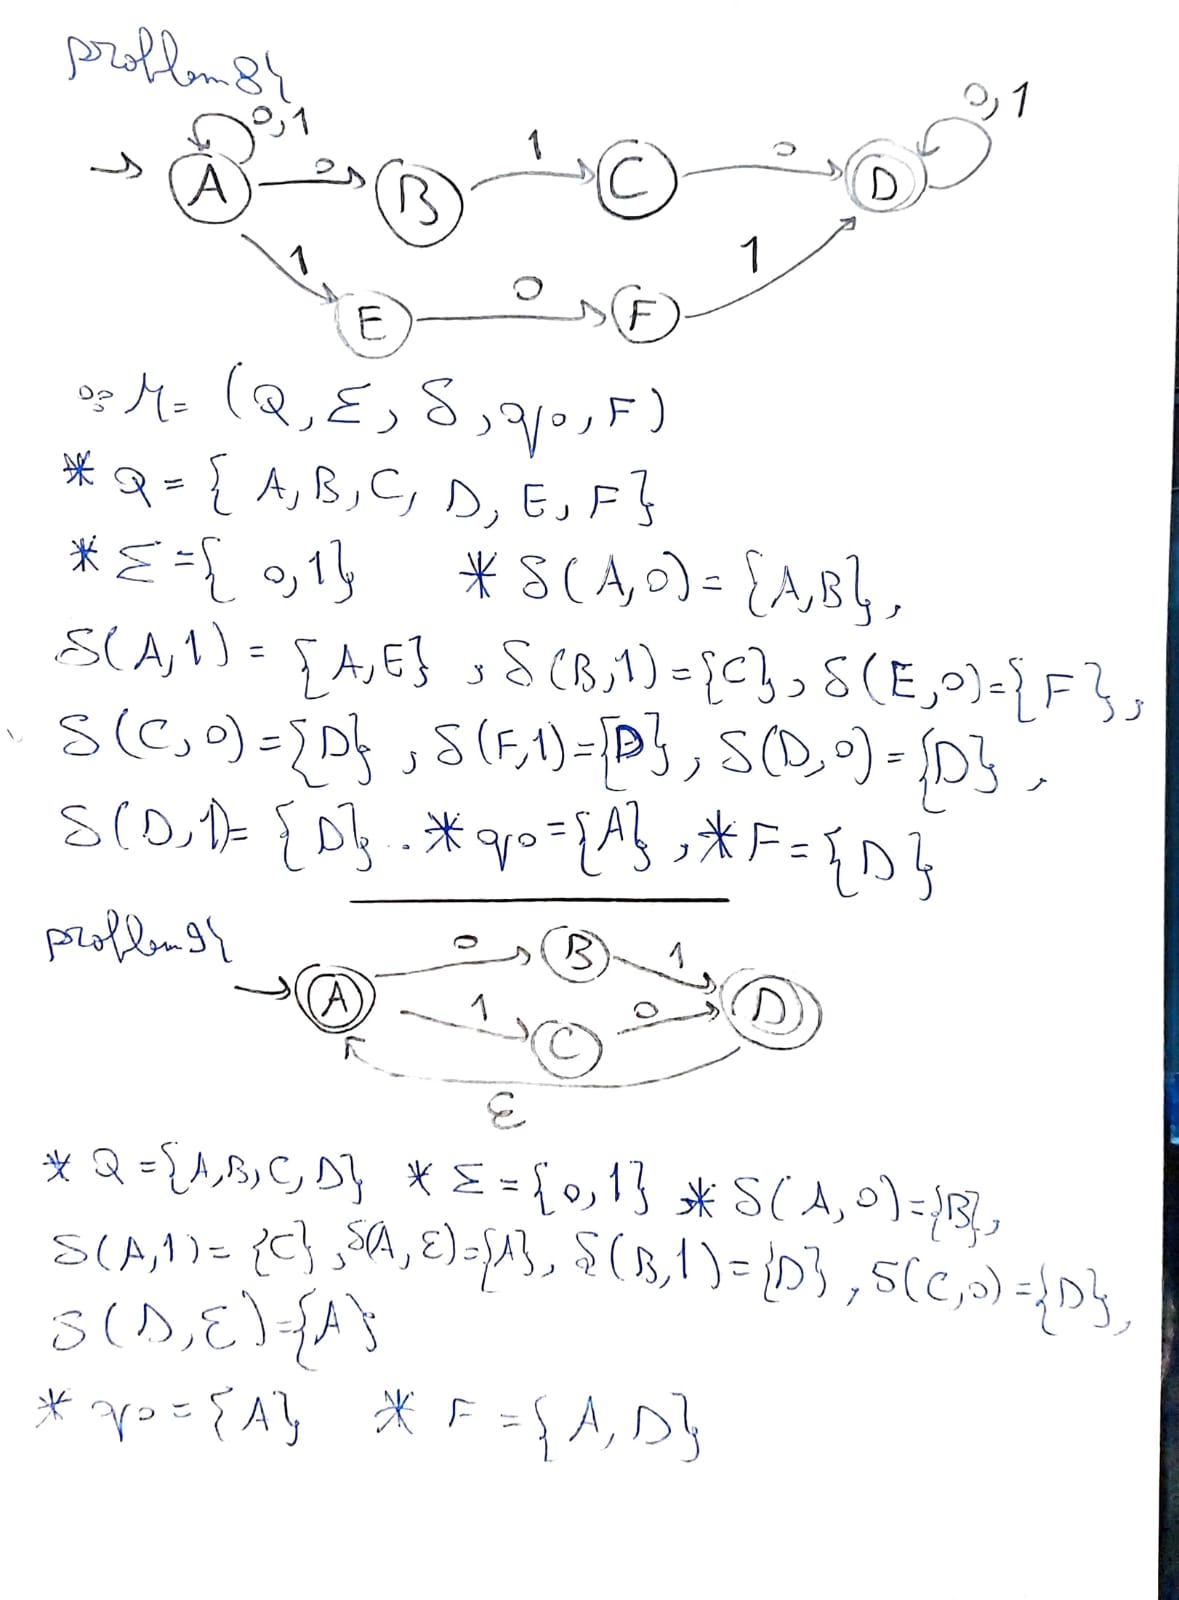 problem 8}
0,1
0,1
→ A 0 B 1 C 0 D
1 E 0 F 1
∴ M= (Q, Σ, δ, q0, F)
* Q = { A, B, C, D, E, F}
* Σ={ 0,1} * δ(A,0)= {A,B},
δ(A,1) = {A,E} , δ(B,1)={C}, δ(E,0)={F},
δ(C,0)={D} , δ(F,1)={D}, δ(D,0)={D} ,
δ(D,1)= {D} . * q0={A} , * F={D}
problem 9}
0 B 1
→ A D
1 C 0
ε
* Q={A,B,C,D} * Σ={0,1} * δ(A,0)={B},
δ(A,1)= {C} , δ(A,ε)={A}, δ(B,1)={D} , δ(C,0)={D},
δ(D,ε)={A}
* q0={A} * F={A, D}